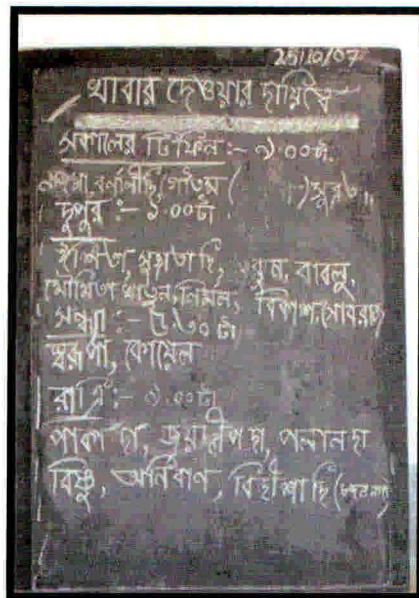 25/10/07
খাবার দেওয়ার দায়িত্বে
সকালের টিফিন :- ৯.০০টা.
বর্নালীদি, গৌতম ( ) সুব্রত
দুপুর :- ১.০০টা
ঈশিতা, সুজাতাদি, বাবলু,
মৌমিতা খাতুন, নির্মল, বিকাশ, সৌরভ
সন্ধ্যা :- ৫.৩০টা
স্বরূপা, কোয়েল
রাত্রি :- ৯.০০টা
পাকা দা, জয়দীপ দা, পলান দা
বিষ্ণু, অনির্বাণ, বিদীশা দি